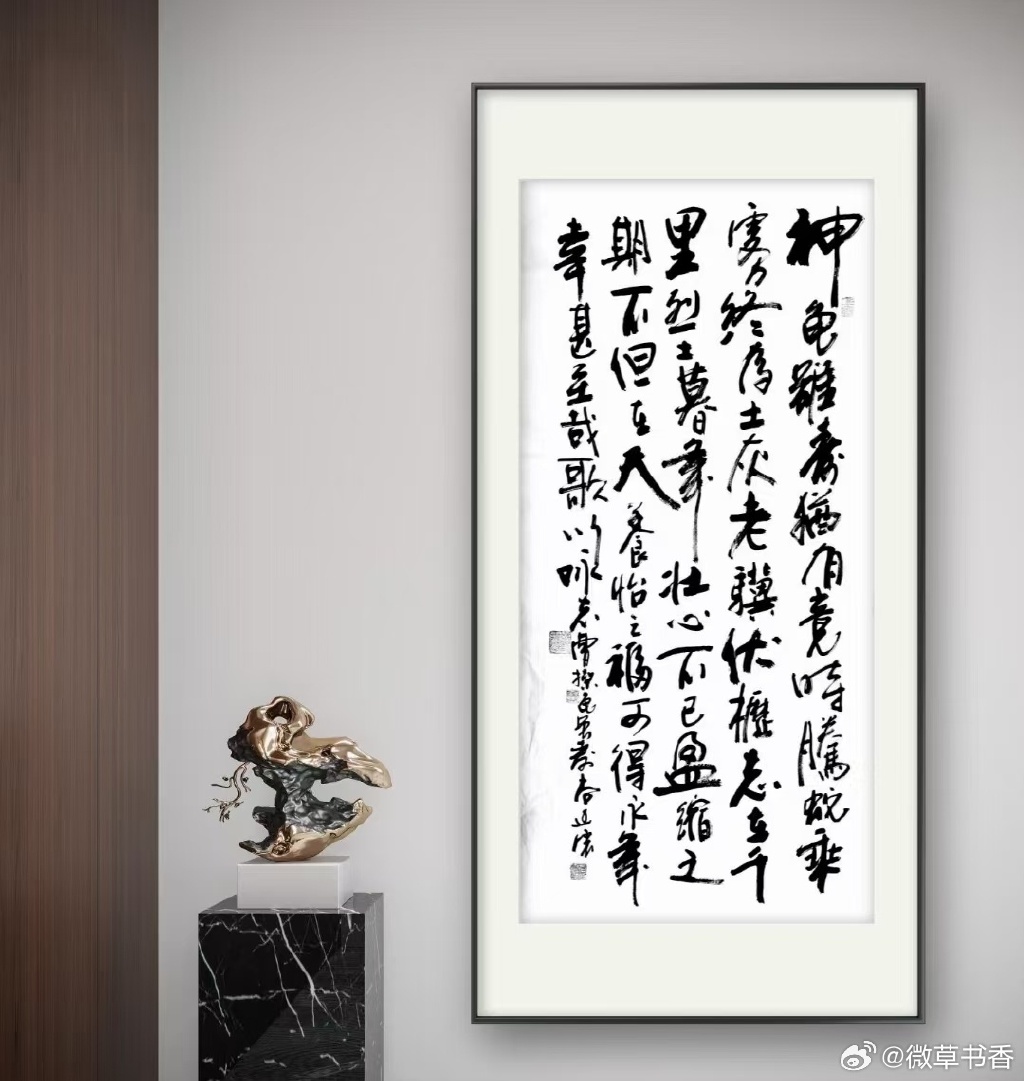 神龟雖壽猶有竟時騰蛇乘
雾終為土灰老驥伏櫪志在千
里烈士暮年壮心不已盈縮之
期不但在天養怡之福可得永年
幸甚至哉歌以咏志曹操龟虽壽
@微草书香